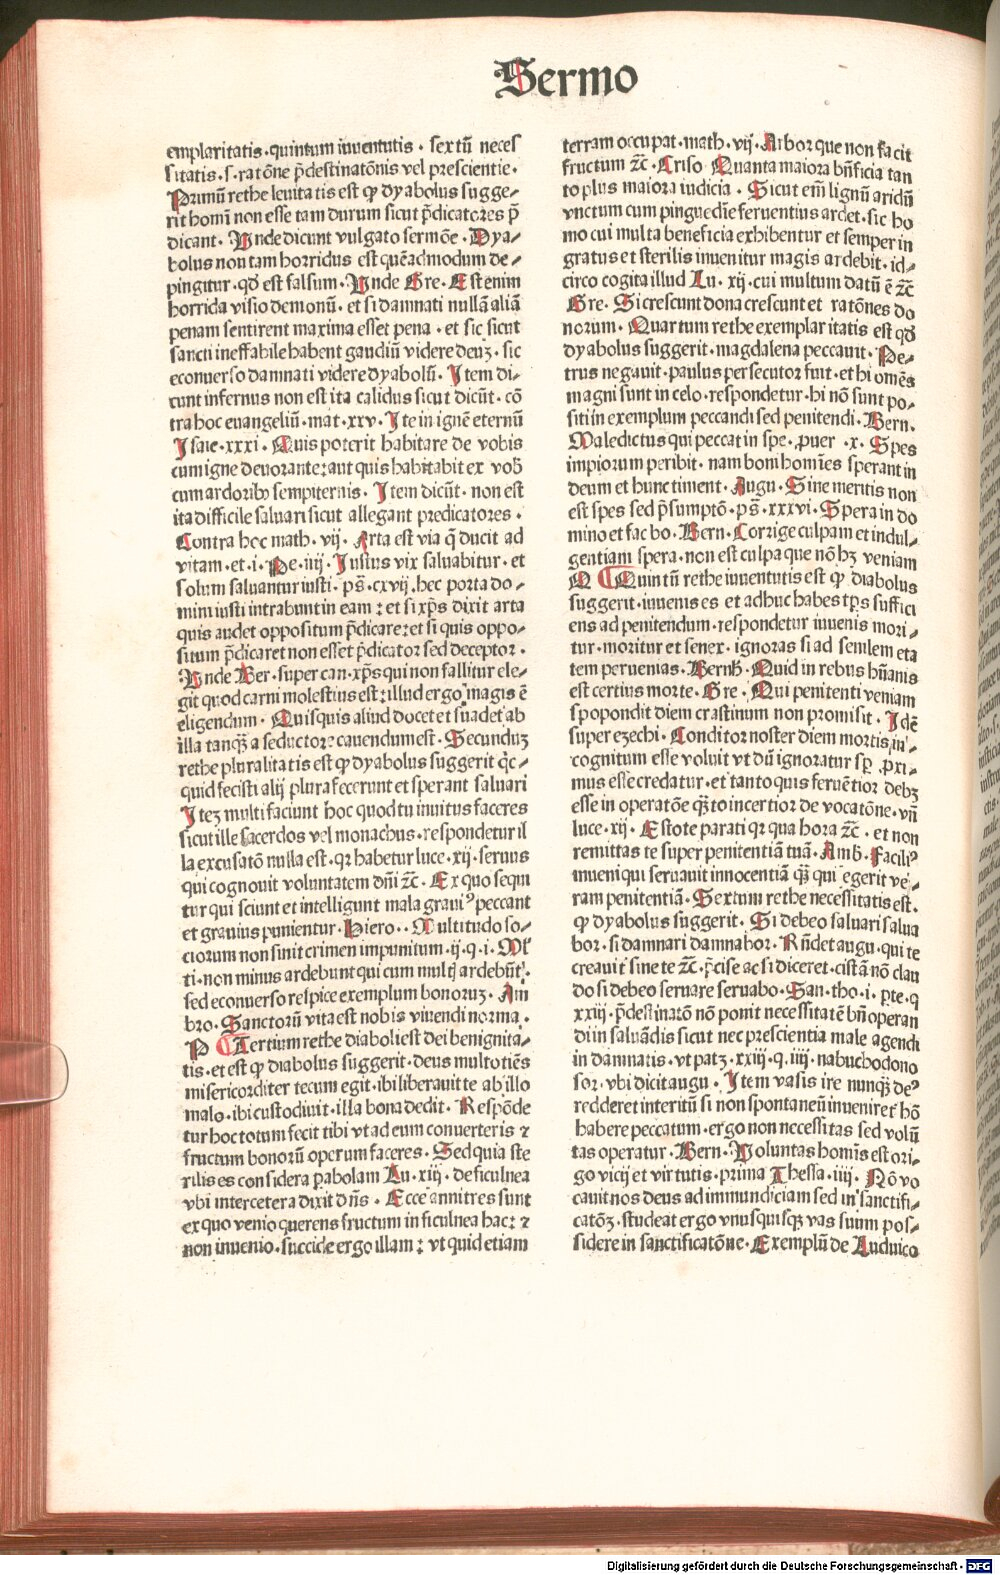 Sermo
emplaritatis·quintum iuuentutis · sextū neces
sitatis·s·ratōne p̄destinatōnis vel prescientie·
Primū rethe leuitatis est ꝙ dyabolus sugge-
rit homī non esse tam durum sicut p̄dicatores p̄
dicant· Unde dicunt vulgato sermōe·Dya-
bolus non tam horridus est quēadmodum de-
pingitur·qd̄ est falsum·Unde Gre·Est enim
horrida visio demonū·et si damnati nullā aliā
penam sentirent maxima esset pena·et sic sicut
sancti ineffabile habent gaudiū videre deuʒ·sic
econuerso damnati videre dyabolū· Item di-
cunt infernus non est ita calidus sicut dicūt·cō
tra hoc euangeliū·mat·xxv·Ite in ignē eternū
Isaie·xxxi·Quis poterit habitare de vobis
cum igne deuorante:aut quis habitabit ex vob̄
cum ardoribꝰ sempiternis· Item dicūt·non est
ita difficile saluari sicut allegant predicatores·
Contra hoc math·vij·Arta est via q̄ ducit ad
vitam·et·i·Pe·iiij·Iustus vix saluabitur·et
solum saluantur iusti·ps̄·cxvij·hec porta do-
mini iusti intrabunt in eam:et si xp̄s dixit arta
quis audet oppositum p̄dicare:et si quis oppo-
situm p̄dicaret non esset p̄dicator sed deceptor·
Unde Ber·super can·xp̄s qui non fallitur ele-
git quod carni molestius est:illud ergo magis ē
eligendum·Quisquis aliud docet et suadet ab
illa tanqꝫ a seductore cauendum est·Secunduʒ
rethe pluralitatis est ꝙ dyabolus suggerit qc̄-
quid fecisti alij plura fecerunt et sperant saluari
Iteʒ multi faciunt hoc quod tu inuitus faceres
sicut ille sacerdos vel monachus·respondetur il
la excusatō nulla est·qr habetur luce·xij·seruus
qui cognouit voluntatem dn̄i ⁊c̄·Ex quo sequi
tur qui sciunt et intelligunt mala grauiꝰ peccant
et grauius punientur·Hiero··Multitudo so-
ciorum non sinit crimen impunitum·ij·q·i·Ml̄
ti·non minus ardebunt qui cum multis ardebūt·
sed econuerso respice exemplum bonoruʒ·Am
bro·Sanctorū vita est nobis viuendi norma·
P ¶Tertium rethe diaboli est dei benignita-
tis·et est ꝙ diabolus suggerit·deus multotiēs
misericorditer tecum egit·ibi liberauit te ab illo
malo·ibi custodiuit·illa bona dedit·Respōde
tur hoc totum fecit tibi vt ad eum conuerteris ⁊
fructum bonorū operum faceres·Sed quia ste
rilis es considera pabolam Lu·xiij·de ficulnea
vbi intercetera dixit dn̄s·Ecce anni tres sunt
ex quo venio querens fructum in ficulnea hac:⁊
non inuenio·succide ergo illam:vt quid etiam
terram occupat·math·vij·Arbor que non facit
fructum ⁊c̄·Criso·Quanta maiora bn̄ficia tan
to plus maiora iudicia·Sicut em̄ lignū aridū
vnctum cum pinguedīe feruentius ardet·sic ho
mo cui multa beneficia exhibentur et semper in
gratus et sterilis inuenitur magis ardebit·id-
circo cogita illud Lu·xij·cui multum datū ē ⁊c̄
Gre·Si crescunt dona crescunt et ratōnes do
norum·Quartum rethe exemplaritatis est qd̄
dyabolus suggerit·magdalena peccauit·Pe-
trus negauit·paulus persecutor fuit·et hi omēs
magni sunt in celo·respondetur·hi nō sunt po-
siti in exemplum peccandi sed penitendi·Bern·
Maledictus qui peccat in spe·ꝓuer·x·Spes
impiorum peribit·nam boni homīes sperant in
deum et hunc timent·Augu·Sine meritis non
est spes sed p̄sumptō·ps̄·xxxvi·Spera in do
mino et fac bo·Bern·Corrige culpam et indul-
gentiam spera·non est culpa que nō hʒ veniam
Q ¶Quintū rethe iuuentutis est ꝙ diabolus
suggerit·iuuenis es et adhuc habes tp̄s suffici
ens ad penitendum·respondetur iuuenis mori-
tur·moritur et senex·ignoras si ad senilem eta
tem peruenias·Bernh̄·Quid in rebus hūanis
est certius morte·Gre·Qui penitenti veniam
spopondit diem crastinum non promisit·Idē
super ezechi·Conditor noster diem mortis in-
cognitum esse voluit vt dū ignoratur sp̄ ꝓxi-
mus esse credatur·et tanto quis feruētior debʒ
esse in operatōe qꝫto incertior de vocatōne·vn̄
luce·xij·Estote parati qr qua hora ⁊c̄·et non
remittas te super penitentiā tuā·Amb̄·Faciliꝰ
inueni qui seruauit innocentiā qꝫ qui egerit ve-
ram penitentiā·Sextum rethe necessitatis est·
ꝙ dyabolus suggerit·Si debeo saluari salua
bor·si damnari damnabor·Rn̄det augu·qui te
creauit sine te ⁊c̄·p̄cise ac si diceret·cistā nō clau
do si debeo seruare seruabo·San·tho·i·pte·q
xxiij·p̄destinatō nō ponit necessitatē bn̄ operan
di in saluādis sicut nec prescientia male agendi
in damnatis·vt patʒ·xxiij·q·iiij·nabuchodono
sor·vbi dicit augu·Item vasis ire nunqꝫ deꝰ
redderet interitū si non spontaneū inueniret hō
habere peccatum·ergo non necessitas sed volū
tas operatur·Bern·Voluntas homīs est ori-
go vicij et virtutis·prima Thessa·iiij·Nō vo
cauit nos deus ad immundiciam sed in sanctifi-
catōʒ·studeat ergo vnusquisqꝫ vas suum pos-
sidere in sanctificatōne·Exemplū de Luduico
Digitalisierung gefördert durch die Deutsche Forschungsgemeinschaft - DFG